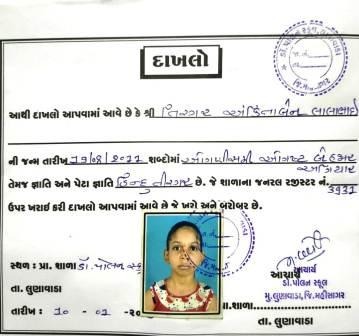 દાખલો
આથી દાખલો આપવામાં આવે છે કે શ્રી તિરગર અંકિતાબેન લાલાભાઈ
ની જન્મ તારીખ 19/08/2011 શબ્દોમાં ઓગણીસમી ઓગષ્ટ બે હજાર અગિયાર
તેમજ જ્ઞાતિ અને પેટા જ્ઞાતિ હિન્દુ તીરગર છે. જે શાળાના જનરલ રજીસ્ટર નં 3931
ઉપર ખરાઈ કરી દાખલો આપવામાં આવે છે જે ખરો અને બરોબર છે.
સ્થળ : પ્રા. શાળા ડૉ. પોલન સ્કુ
તા. લુણાવાડા
તારીખ : 10 - 01 - 20
આચાર્ય
આચાર્ય
ડૉ.પોલન સ્કૂલ
મુ.લુણાવાડા, જિ.મહીસાગર
શાળા
તા. લુણાવાડા